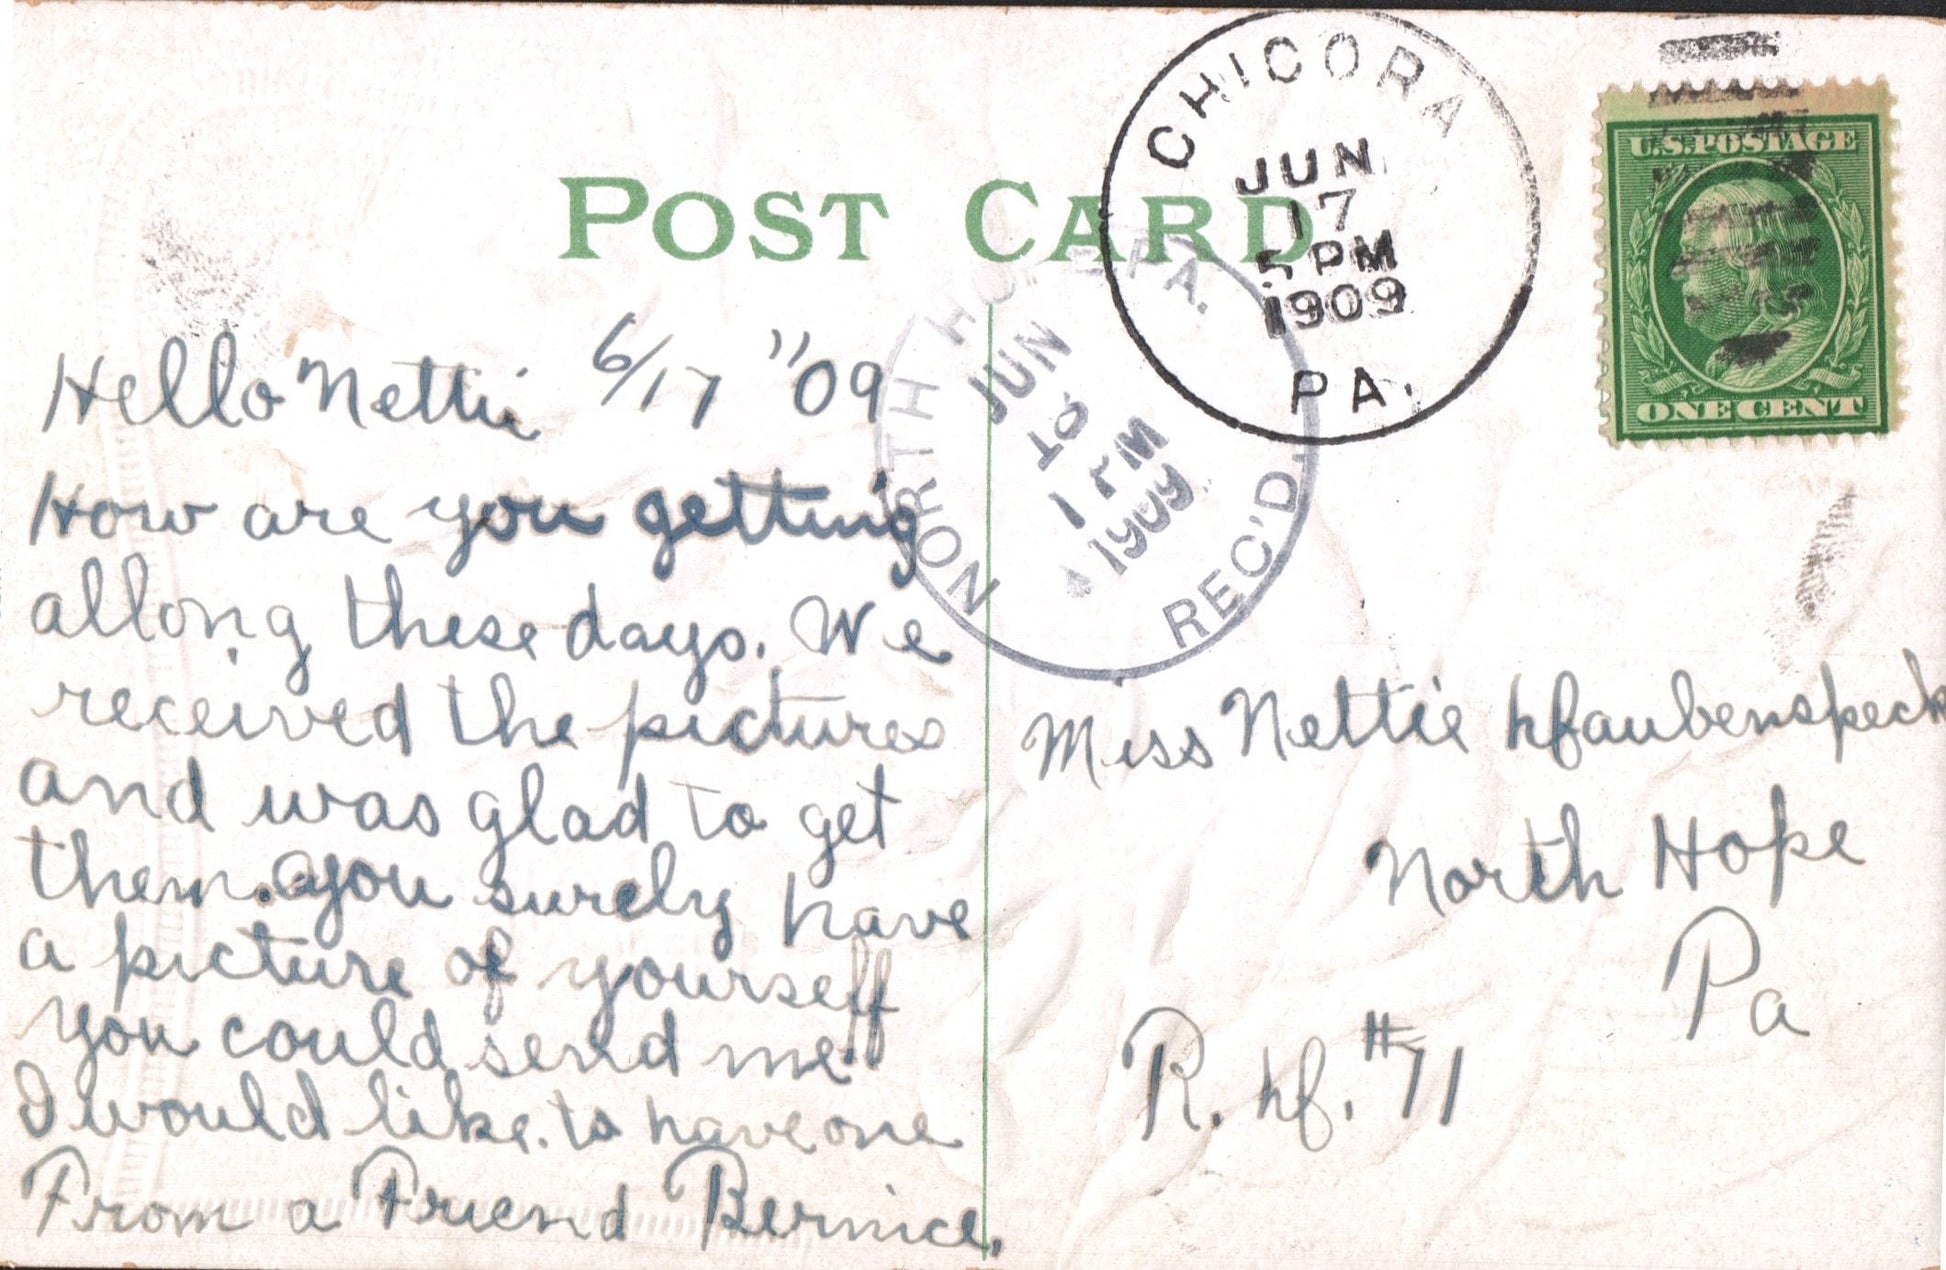 POST CARD
CHICORA
JUN
17
5 PM
1909
PA.
U.S. POSTAGE
ONE CENT
NORTH HOPE PA.
JUN
18
1 PM
1909
REC'D.
Hello Nettie 6/17 "09
How are you getting
allong these days. We
received the pictures
and was glad to get
them. you surely have
a picture of yourself
you could send me.
I would like to have one
From a Friend Bernice.
Miss Nettie Hfaubenspeck
North Hope
Pa
R. Hf. #71